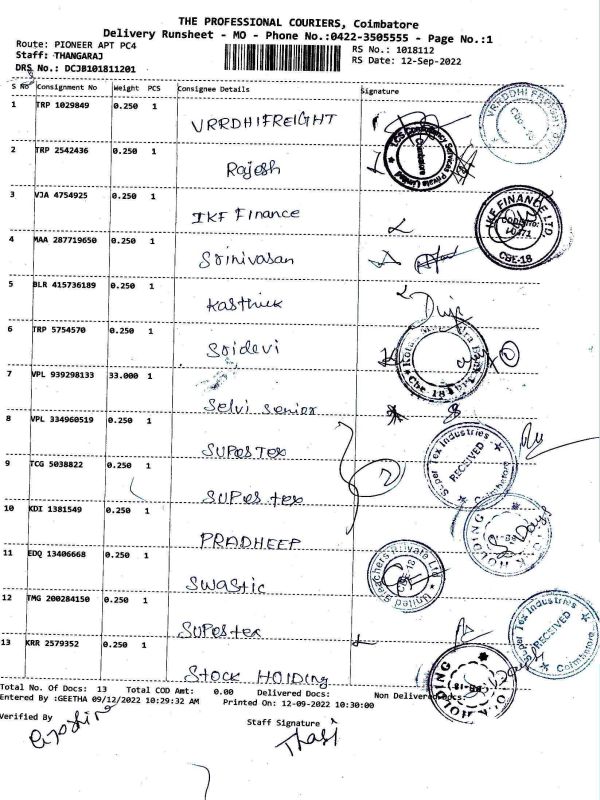 THE PROFESSIONAL COURIERS, Coimbatore
Delivery Runsheet - MO - Phone No.:0422-3505555 - Page No.:1
Route: PIONEER APT PC4
RS No.: 1018112
Staff: THANGARAJ
RS Date: 12-Sep-2022
DRS No.: DCJB101811201
S No Consignment No Weight PCS Consignee Details Signature
1 TRP 1029849 0.250 1 VRRDHIFREIGHT
2 TRP 2542436 0.250 1 Rajesh
3 VJA 4754925 0.250 1 IKF Finance
4 MAA 287719650 0.250 1 Srinivasan
5 BLR 415736189 0.250 1 Karthick
6 TRP 5754570 0.250 1 Sridevi
7 VPL 939298133 33.000 1 Selvi senior
8 VPL 334960519 0.250 1 SUPER TEX
9 TCG 5038822 0.250 1 SUPER tex
10 KDI 1381549 0.250 1 PRADHEEP
11 EDQ 13406668 0.250 1 Swastic
12 TMG 200284150 0.250 1 SUPER tex
13 KRR 2579352 0.250 1 STOCK HOLDING
VRRDDHI FREIGHT
Cbe-18
Services Private Limited
Coimbatore
IKF FINANCE LTD.
CBE-18
Cbe. 18
Super Tex Industries
RECEIVED
Coimbatore
K HOLDING
United
Private Ltd
CBE-18
Super Tex Industries
RECEIVED
Coimbatore
HOLDING
Total No. Of Docs: 13 Total COD Amt: 0.00 Delivered Docs: Non Delivered Docs:
Entered By :GEETHA 09/12/2022 10:29:32 AM Printed On: 12-09-2022 10:30:00
Verified By
Staff Signature